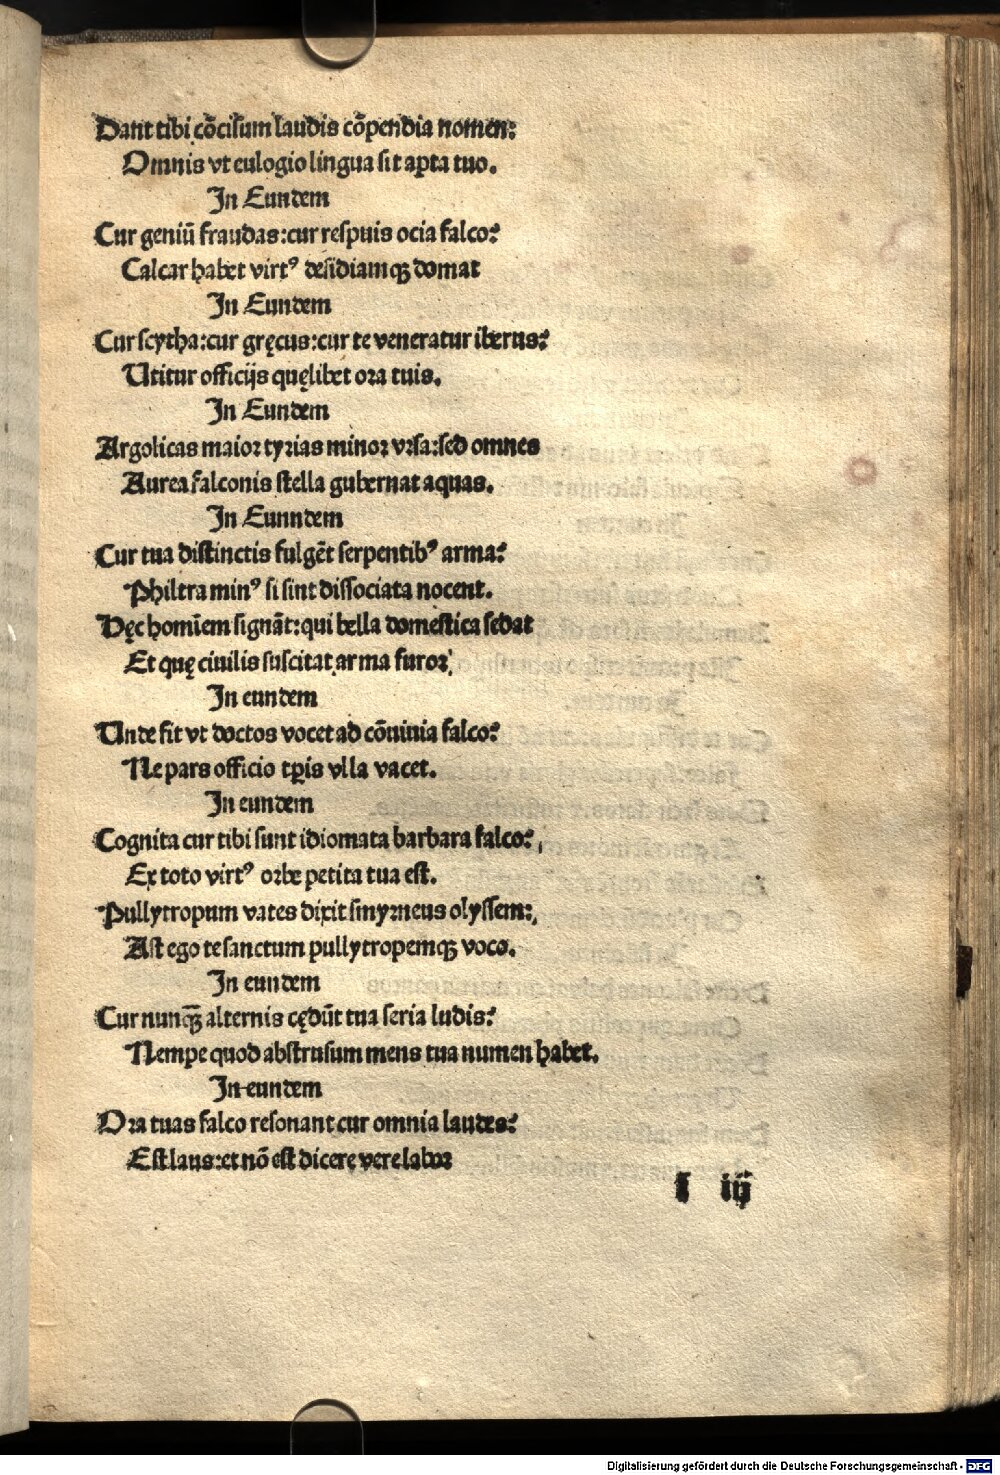 Dant tibi cōcisum laudis cōpendia nomen:
Omnis vt eulogio lingua sit apta tuo.
In Eundem
Cur geniū fraudas:cur respuis ocia falco?
Calcar habet virtꝰ desidiamqꝫ domat
In Eundem
Cur scytha:cur gręcus:cur te veneratur iberus?
Utitur officijs quęlibet ora tuis.
In Eundem
Argolicas maior tyrias minor vrsa:sed omnes
Aurea falconis stella gubernat aquas.
In Eunndem
Cur tua distinctis fulgēt serpentibꝰ arma?
Philtra minꝰ si sint dissociata nocent.
Hęc homīem signāt:qui bella domestica sedat
Et quę ciuilis suscitat arma furor,
In eundem
Unde fit vt doctos vocet ad cōuiuia falco?
Ne pars officio tꝑis vlla vacet.
In eundem
Cognita cur tibi sunt idiomata barbara falco?
Ex toto virtꝰ orbe petita tua est.
Pullytropum vates dixit smyrneus olyssem:
Ast ego te sanctum pullytropemqꝫ voco.
In eundem
Cur nunqꝫ̄ alternis cędūt tua seria ludis?
Nempe quod abstrusum mens tua numen habet.
In eundem
Ora tuas falco resonant cur omnia laudes?
Est laus:et nō est dicerę vere labor
f iij
Digitalisierung gefördert durch die Deutsche Forschungsgemeinschaft - DFG